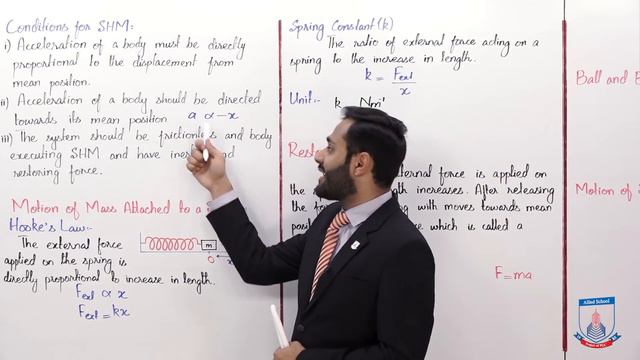 Conditions for SHM:
i) Acceleration of a body must be directly
proportional to the displacement from
mean position.
ii) Acceleration of a body should be directed
towards its mean position a α -x
iii) The system should be and body
executing SHM and have
restoring force.
Motion of Mass Attached to a
Hooke's Law:-
The external force
applied on the spring is
directly proportional to increase in length.
m
o
x
Fext α x
Fext = kx
Spring Constant (k)
The ratio of external force acting on a
spring to the increase in length.
k = Fext
x
Unit:- k Nm⁻¹
external force is applied on
the length increases. After releasing
the with moves towards mean
which is called a
F=ma
Ball and
Motion of
Allied School